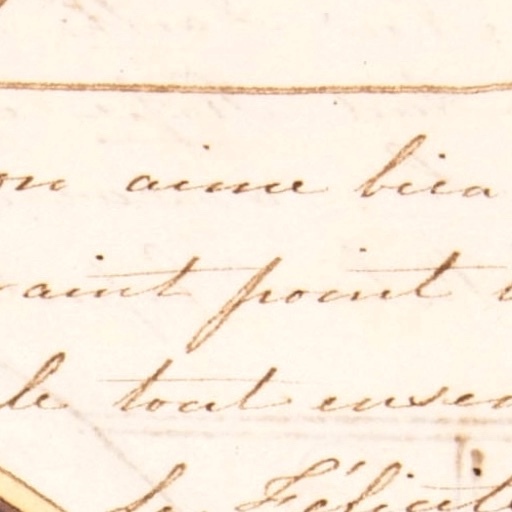 on aime bien
raint point
le tout ensem
le Félicit